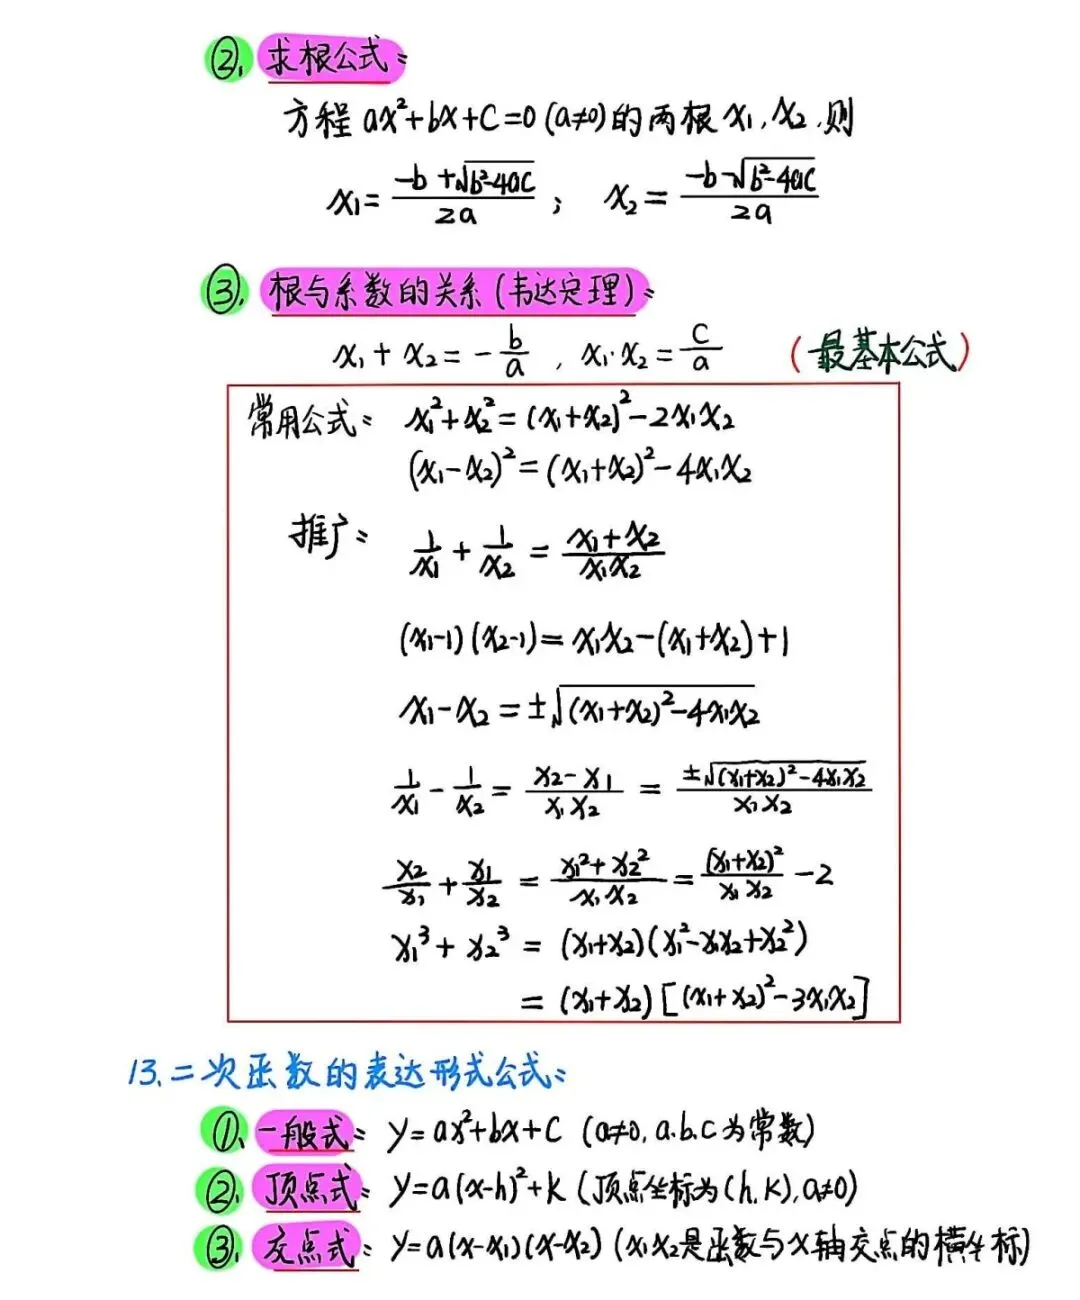 ②. 求根公式:
方程 ax²+bx+c=0 (a≠0) 的两根 x₁, x₂, 则
x₁ = (-b+√(b²-4ac))/(2a) ; x₂ = (-b-√(b²-4ac))/(2a)
③. 根与系数的关系 (韦达定理):
x₁ + x₂ = -b/a , x₁·x₂ = c/a (最基本公式)
常用公式: x₁²+x₂² = (x₁+x₂)²-2x₁x₂
(x₁-x₂)² = (x₁+x₂)²-4x₁x₂
推广: 1/x₁ + 1/x₂ = (x₁+x₂)/(x₁x₂)
(x₁-1)(x₂-1) = x₁x₂-(x₁+x₂)+1
x₁-x₂ = ±√((x₁+x₂)²-4x₁x₂)
1/x₁ - 1/x₂ = (x₂-x₁)/(x₁x₂) = ±√((x₁+x₂)²-4x₁x₂)/(x₁x₂)
x₂/x₁ + x₁/x₂ = (x₁²+x₂²)/(x₁x₂) = (x₁+x₂)²/(x₁x₂) -2
x₁³+x₂³ = (x₁+x₂)(x₁²-x₁x₂+x₂²)
= (x₁+x₂)[(x₁+x₂)²-3x₁x₂]
13. 二次函数的表达形式公式:
①. 一般式: y=ax²+bx+c (a≠0, a.b.c为常数)
②. 顶点式: y=a(x-h)²+k (顶点坐标为(h,k), a≠0)
③. 交点式: y=a(x-x₁)(x-x₂) (x₁x₂是函数与x轴交点的横坐标)